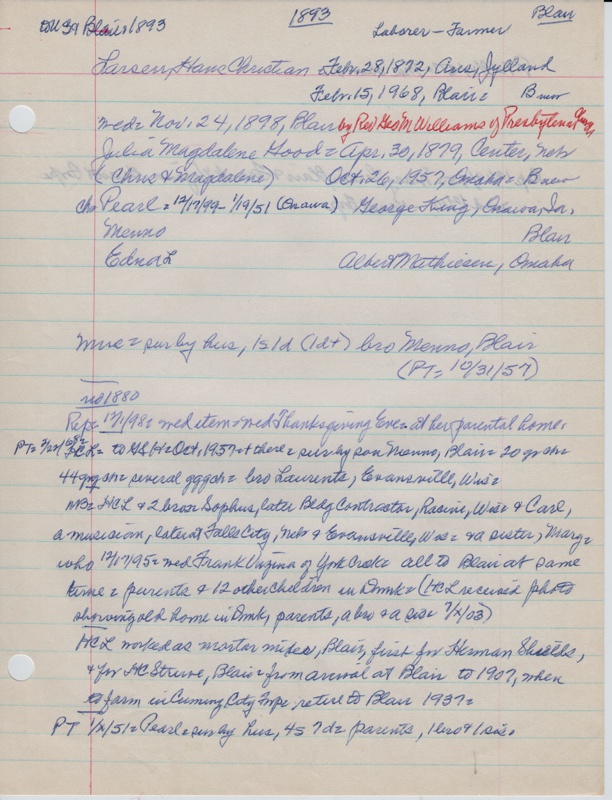 1893 Blair
Blair 1893 Laborer - Farmer
Larsen, Hans Christian Febr. 28, 1872, Jylland
Febr. 15, 1968, Blair = B new
med = Nov. 24, 1898, Blair by Rev Geo M Williams of Presbyterian
Julia Magdalene Hood = Apr. 30, 1879, Center, Neb
(Chris & Magdalene) Oct. 26, 1957, Omaha = B new
ch Pearl = 12/17/99 - 1/19/51 (Onawa) George King, Onawa, Ia,
Menno Blair
Edna L Albert Mathiesen, Omaha
mrs = sur by hus, 1s 1d (1d+) bro Menno, Blair
(PT = 10/31/57)
no 1880
Rep = 12/1/98 = med item = med Thanksgiving Eve = at her parental home.
HCL = to Oct, 1957 + there = sur by son Menno, Blair = 20 gr ch =
44 ggr ch = several gggch = bro Laurents, Evansville, Wis =
NB = HCL & 2 bros Sophus, later Bldg Contractor, Racine, Wis = & Carl,
a musician, later at Falls City, Neb & Evansville, Wis = & a sister, Mary =
who 12/17/95 = med Frank of York Creek = all to Blair at same
time = parents & 12 other children in Dmk = (HCL received photo
showing old home in Dmk, parents, a bro & a sis = /03)
HCL worked as mortar mixer, Blair, first for Herman Shields,
& for HC Struve, Blair = from arrival at Blair to 1907, when
to farm in Cuming City Twp, retire to Blair 1937 =
PT 1/x/51 = Pearl = sur by hus, 4s 7d = parents, 1 bro & 1 sis.